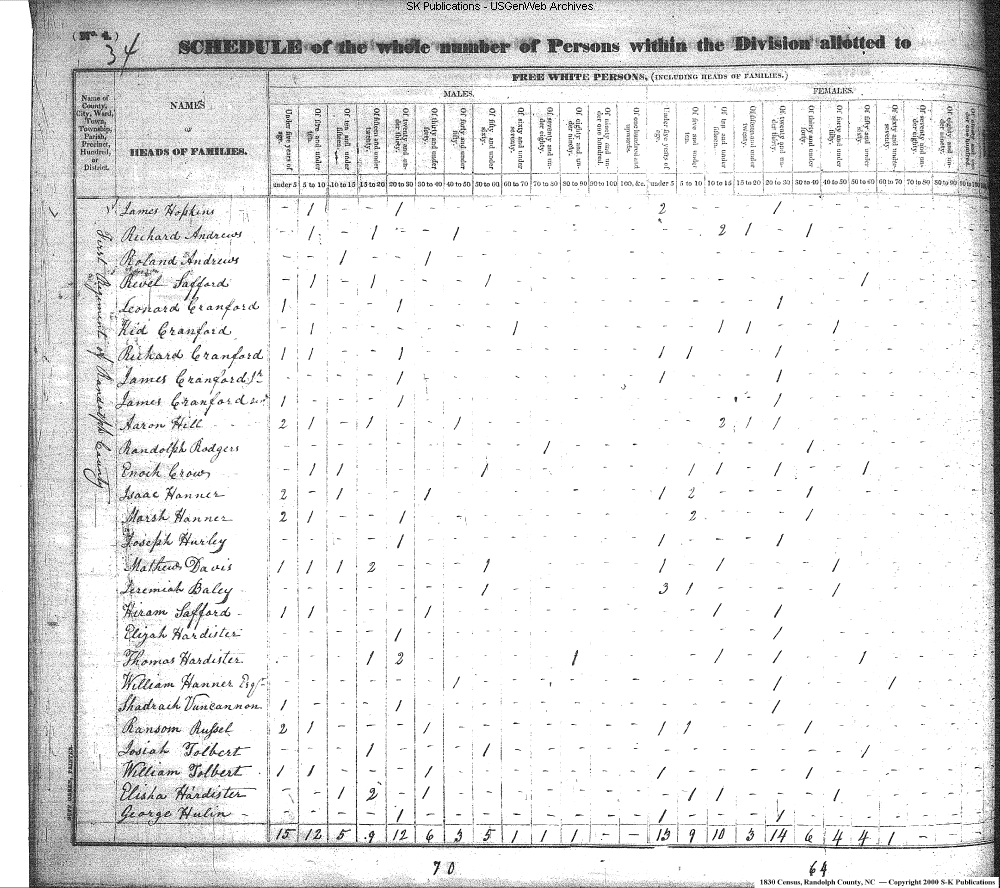 SK Publications - USGenWeb Archives
(No. 4.)
34
SCHEDULE of the whole number of Persons within the Division allotted to
FREE WHITE PERSONS, (INCLUDING HEADS OF FAMILIES.)
MALES. FEMALES.
Name of County, City, Ward, Town, Township, Parish, Precinct, Hundred, or District.
NAMES OF HEADS OF FAMILIES.
under 5 5 to 10 10 to 15 15 to 20 20 to 30 30 to 40 40 to 50 50 to 60 60 to 70 70 to 80 80 to 90 90 to 100 100, &c. under 5 5 to 10 10 to 15 15 to 20 20 to 30 30 to 40 40 to 50 50 to 60 60 to 70 70 to 80 80 to 90
First Regiment of Randolph County
James Hopkins - 1 - - 1 - - - - - - - - 2 - - - 1 - - - - - -
Richard Andrews - 1 - 1 - - 1 - - - - - - - - 2 1 - 1 - - - - -
Roland Andrews - - 1 - - 1 - - - - - - - - - - - - - - - - - -
Revel Safford - 1 - 1 - - - 1 - - - - - - - - - - - - 1 - - -
Leonard Cranford 1 - - - 1 - - - - - - - - - - - - 1 - - - - - -
Kid Cranford - 1 - - - - - - 1 - - - - - - 1 1 - - 1 - - - -
Richard Cranford 1 1 - - 1 - - - - - - - - 1 1 - - 1 - - - - - -
James Cranford Sr - - - - 1 - - - - - - - - 1 - - - 1 - - - - - -
James Cranford 1 - - - 1 - - - - - - - - - - - - 1 - - - - - -
Aaron Hill 2 1 - 1 - - 1 - - - - - - - - 2 1 1 - - - - - -
Randolph Rodgers - - - - - - - - - 1 - - - - - - - - 1 - - - - -
Enoch Crow - 1 1 - - - - 1 - - - - - - 1 1 - 1 - - 1 - - -
Isaac Hanner 2 - 1 - - 1 - - - - - - - 1 2 - - - 1 - - - - -
Marsh Hanner 2 1 - - 1 - - - - - - - - - 2 - - - 1 - - - - -
Joseph Hurley - - - - 1 - - - - - - - - 1 - - - 1 - - - - - -
Mathew Davis 1 1 1 2 - - - 1 - - - - - 1 - 1 - - - 1 - - - -
Jeremiah Baley - - - - - - - 1 - - - - - 3 1 - - - - 1 - - - -
Hiram Safford 1 1 - - - 1 - - - - - - - - - 1 - 1 - - - - - -
Elijah Hardister - - - - 1 - - - - - - - - - - - - 1 - - - - - -
Thomas Hardister - - - 1 2 - - - - - 1 - - - - 1 - 1 - - 1 - - -
William Hanner Esqr - - - - - - 1 - - - - - - - - - - 1 - - - 1 - -
Shadrach Vuncannon 1 - - - 1 - - - - - - - - - - - - 1 - - - - - -
Ransom Russel 2 1 - - - 1 - - - - - - - 1 1 - - - 1 - - - - -
Josiah Tolbert - - - 1 - - - 1 - - - - - - - - - - - - 1 - - -
William Tolbert 1 1 - - - 1 - - - - - - - 1 - - - - 1 - - - - -
Elisha Hardister - - 1 2 - 1 - - - - - - - - 1 1 - - - 1 - - - -
George Hulin - - - - 1 - - - - - - - - 1 - - - 1 - - - - - -
15 12 5 9 12 6 3 5 1 1 1 - - 13 9 10 3 14 6 4 4 1 - -
70 64
1830 Census, Randolph County, NC — Copyright 2000 S-K Publications